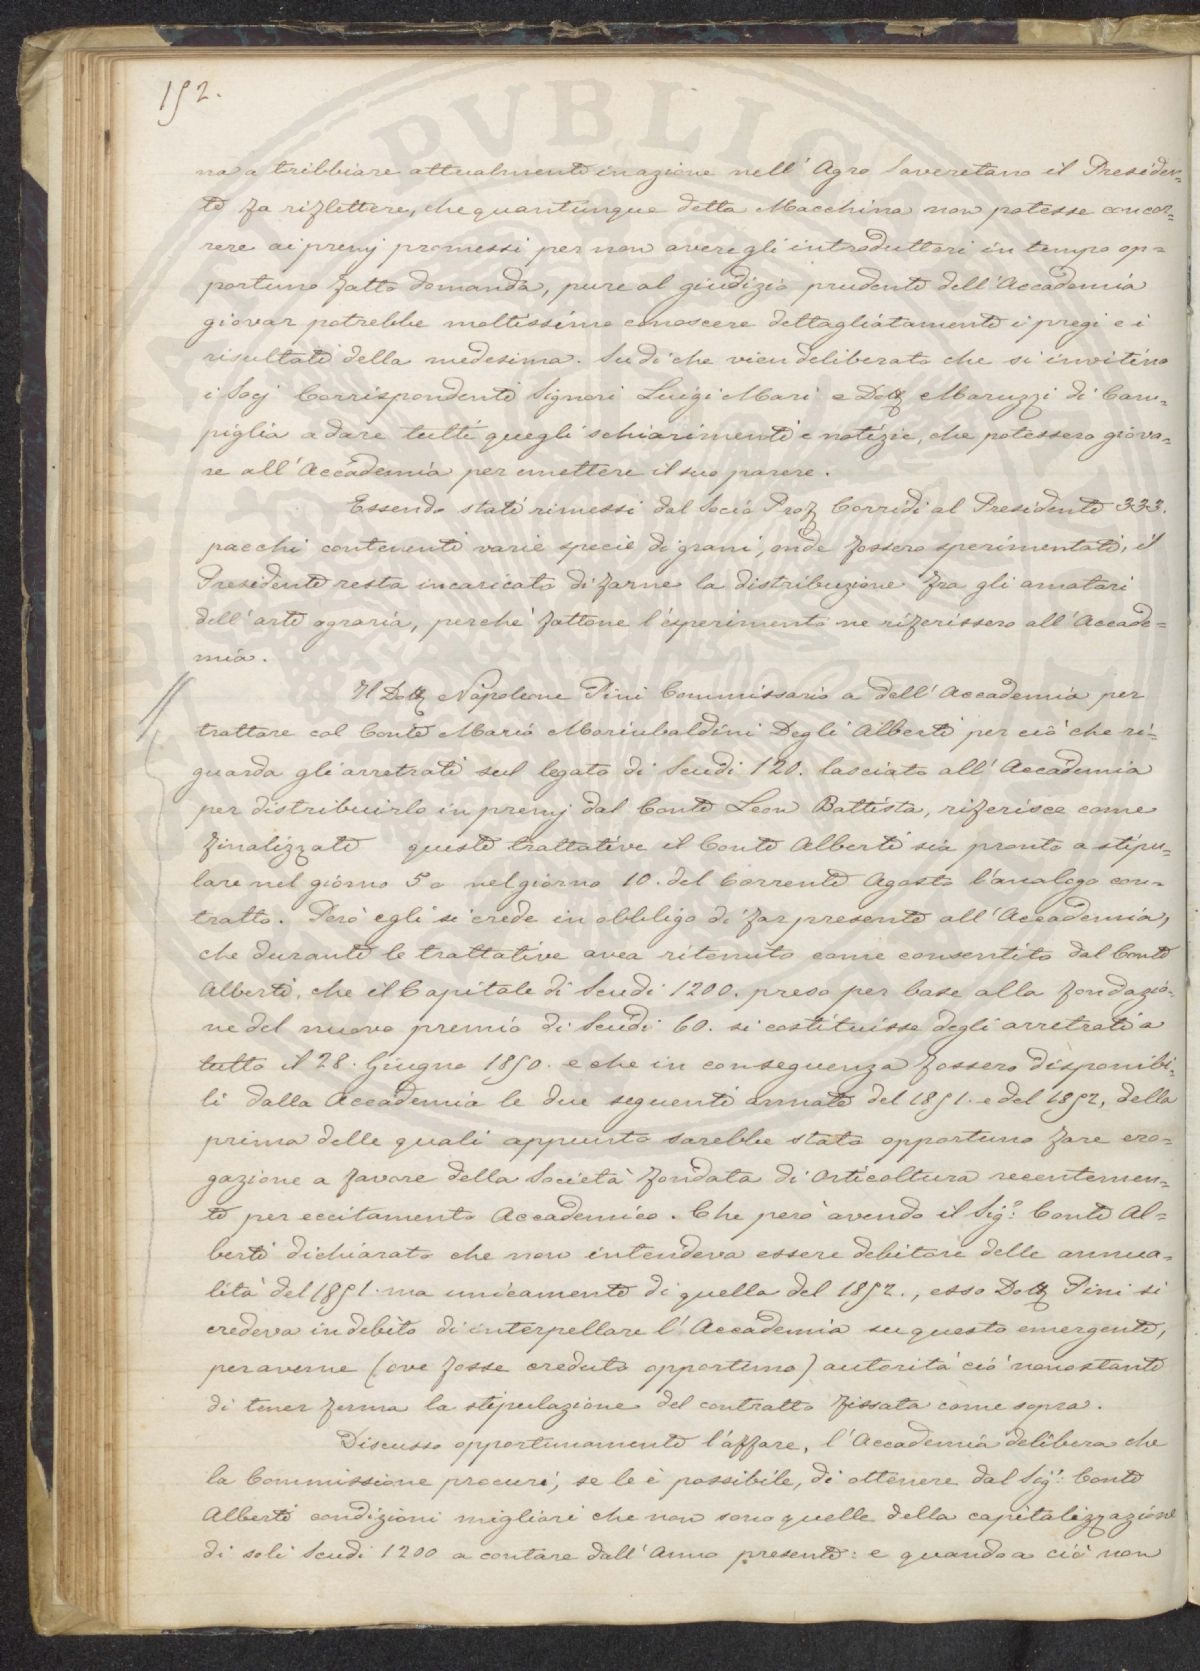 152.
na a tribbiare attualmente in azione nell' Agro Saveretano il Presiden-
te fa riflettere, che quantunque detta Macchina non potesse concor-
rere ai premj promessi per non avere gli introduttori in tempo op-
portuno fatto domanda, pure al giudizio prudente dell' Accademia
giovar potrebbe moltissimo conoscere dettagliatamente i pregi e i
risultati della medesima. Su di che vien deliberato che si invitino
i Socj Corrispondenti Signori Luigi Mari e Dott Maruzzi di Cam-
piglia a dare tutti quegli schiarimenti e notizie, che potessero giova-
re all' Accademia per emettere il suo parere.
Essendo stati rimessi dal Socio Prof Corridi al Presidente 333.
pacchi contenenti varie specie di grani, onde fossero sperimentati, il
Presidente resta incaricato di farne la distribuzione fra gli amatori
dell' arte agraria, perchè fattone l'esperimento ne riferissero all' Accade-
mia.
Il Dott Napoleone Pini Commissario a dell' Accademia per
trattare col Conte Mario Moriubaldini Degli Alberti per ciò che ri-
guarda gli arretrati sul legato di Scudi 120. lasciato all' Accademia
per distribuirlo in premj dal Conte Leon Battista, riferisce come
finalizzate queste trattative il Conte Alberti sia pronto a stipu-
lare nel giorno 5 o nel giorno 10. del Corrente Agosto l'analogo con-
tratto. Però egli si crede in obbligo di far presente all' Accademia,
che durante le trattative avea ritenuto come consentito dal Conte
Alberti, che il Capitale di Scudi 1200. preso per base alla fondazio-
ne del nuovo premio di Scudi 60. si costituisse degli arretrati a
tutto il 28. Giugno 1850. e che in conseguenza fossero disponibi-
li dalla Accademia le due seguenti annate del 1851. e del 1852, della
prima delle quali appunto sarebbe stato opportuno fare ero-
gazione a favore della Società fondata di Orticoltura recentemen-
te per eccitamento Accademico. Che però avendo il Sig:º Conte Al-
berti dichiarato che non intendeva essere debitore delle annua-
lità del 1851. ma unicamente di quella del 1852., esso Dott Pini si
credeva in debito di interpellare l' Accademia su questo emergente,
per averne (ove fosse creduto opportuno) autorità ciò nonostante
di tener ferma la stipulazione del contratto fissata come sopra.
Discusso opportunamente l'affare, l' Accademia delibera che
la Commissione procuri, se le è possibile, di ottenere dal Sig:º Conte
Alberti condizioni migliori che non sono quelle della capitalizzazione
di soli Scudi 1200 a contare dall' Anno presente: e quando a ciò non